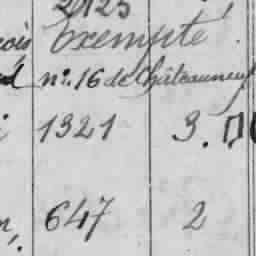 2123
ois Exempté
n°. 16 de Châteauneuf
1321 3.
647 2